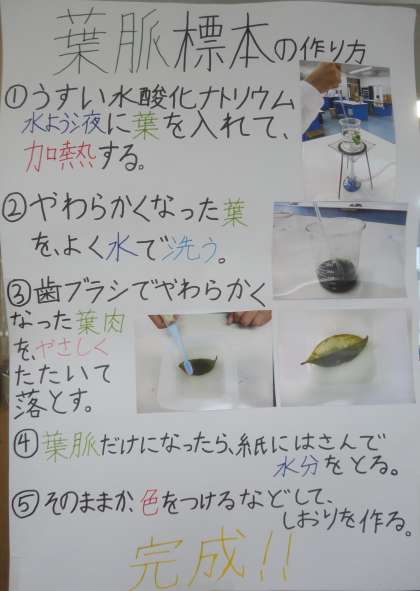 葉脈標本の作り方
①うすい水酸化ナトリウム
水よう液に葉を入れて、
加熱する。
②やわらかくなった葉
を、よく水で洗う。
③歯ブラシでやわらかく
なった葉肉
を、やさしく
たたいて
落とす。
④葉脈だけになったら、紙にはさんで
水分をとる。
⑤そのままか、色をつけるなどして、
しおりを作る。
完成!!